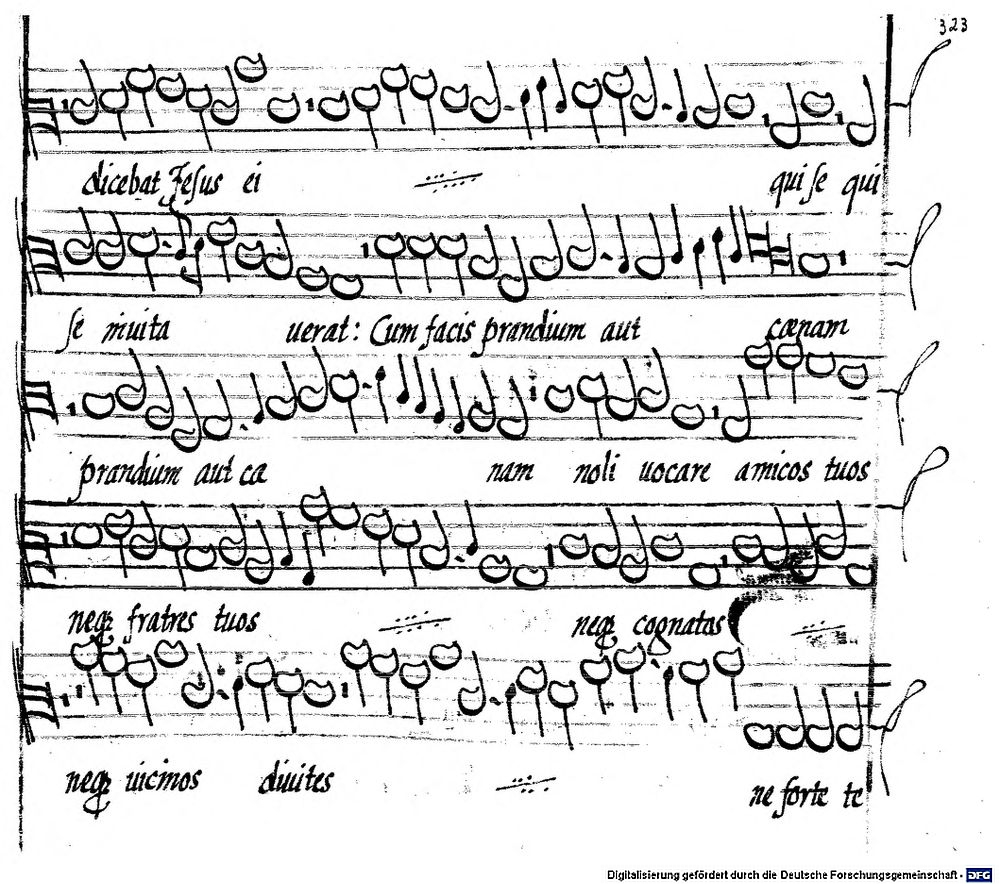 323
dicebat Jesus ei qui se qui
se inuita uerat: Cum facis prandium aut cœnam
prandium aut cœ nam noli uocare amicos tuos
neqȝ fratres tuos neqȝ cognatos
neqȝ uicinos diuites ne forte te
Digitalisierung gefördert durch die Deutsche Forschungsgemeinschaft - DFG